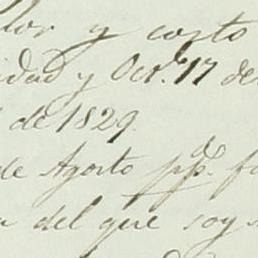 lor y costo
idad y Oct.e 17 de
de 1829.
de Agosto pp.do
del que soy